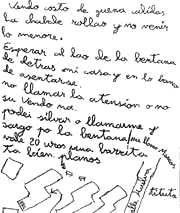 Vendo costo de guena calidas
ha bable rollao y no venir
lo menore.
Esperar al lao de la bentana
de detras mi casa y en lo banco
de asentarse.
no llamar la atension o no
su vendo na.
podei silvar o llamarme y
salgo po la bentana
me llamo Manue
vale 20 uros una barrita
ta bien planos
calle